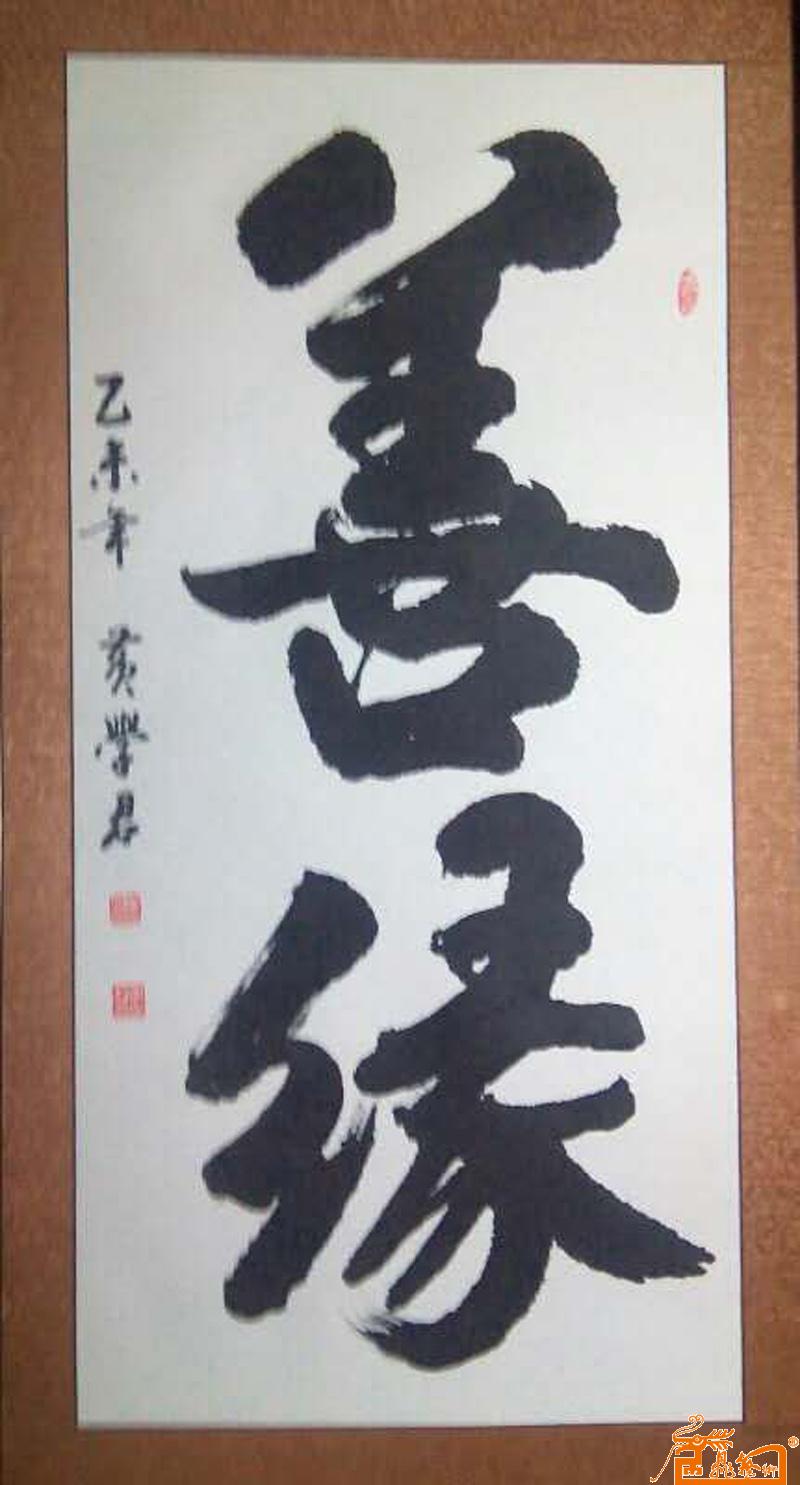 善缘
乙未年 黄学君